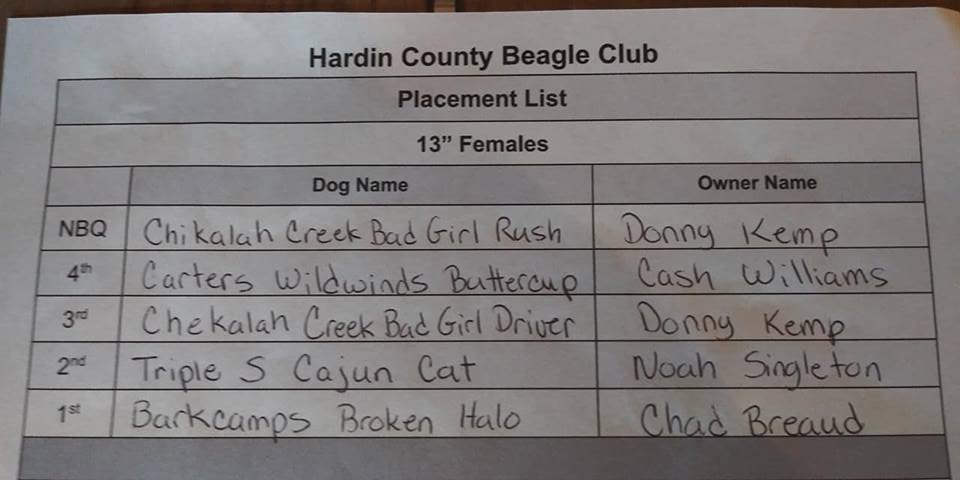 Hardin County Beagle Club
Placement List
13” Females
Dog Name Owner Name
NBQ Chikalah Creek Bad Girl Rush Donny Kemp
4th Carters Wildwinds Buttercup Cash Williams
3rd Chekalah Creek Bad Girl Driver Donny Kemp
2nd Triple S Cajun Cat Noah Singleton
1st Barkcamps Broken Halo Chad Breaud